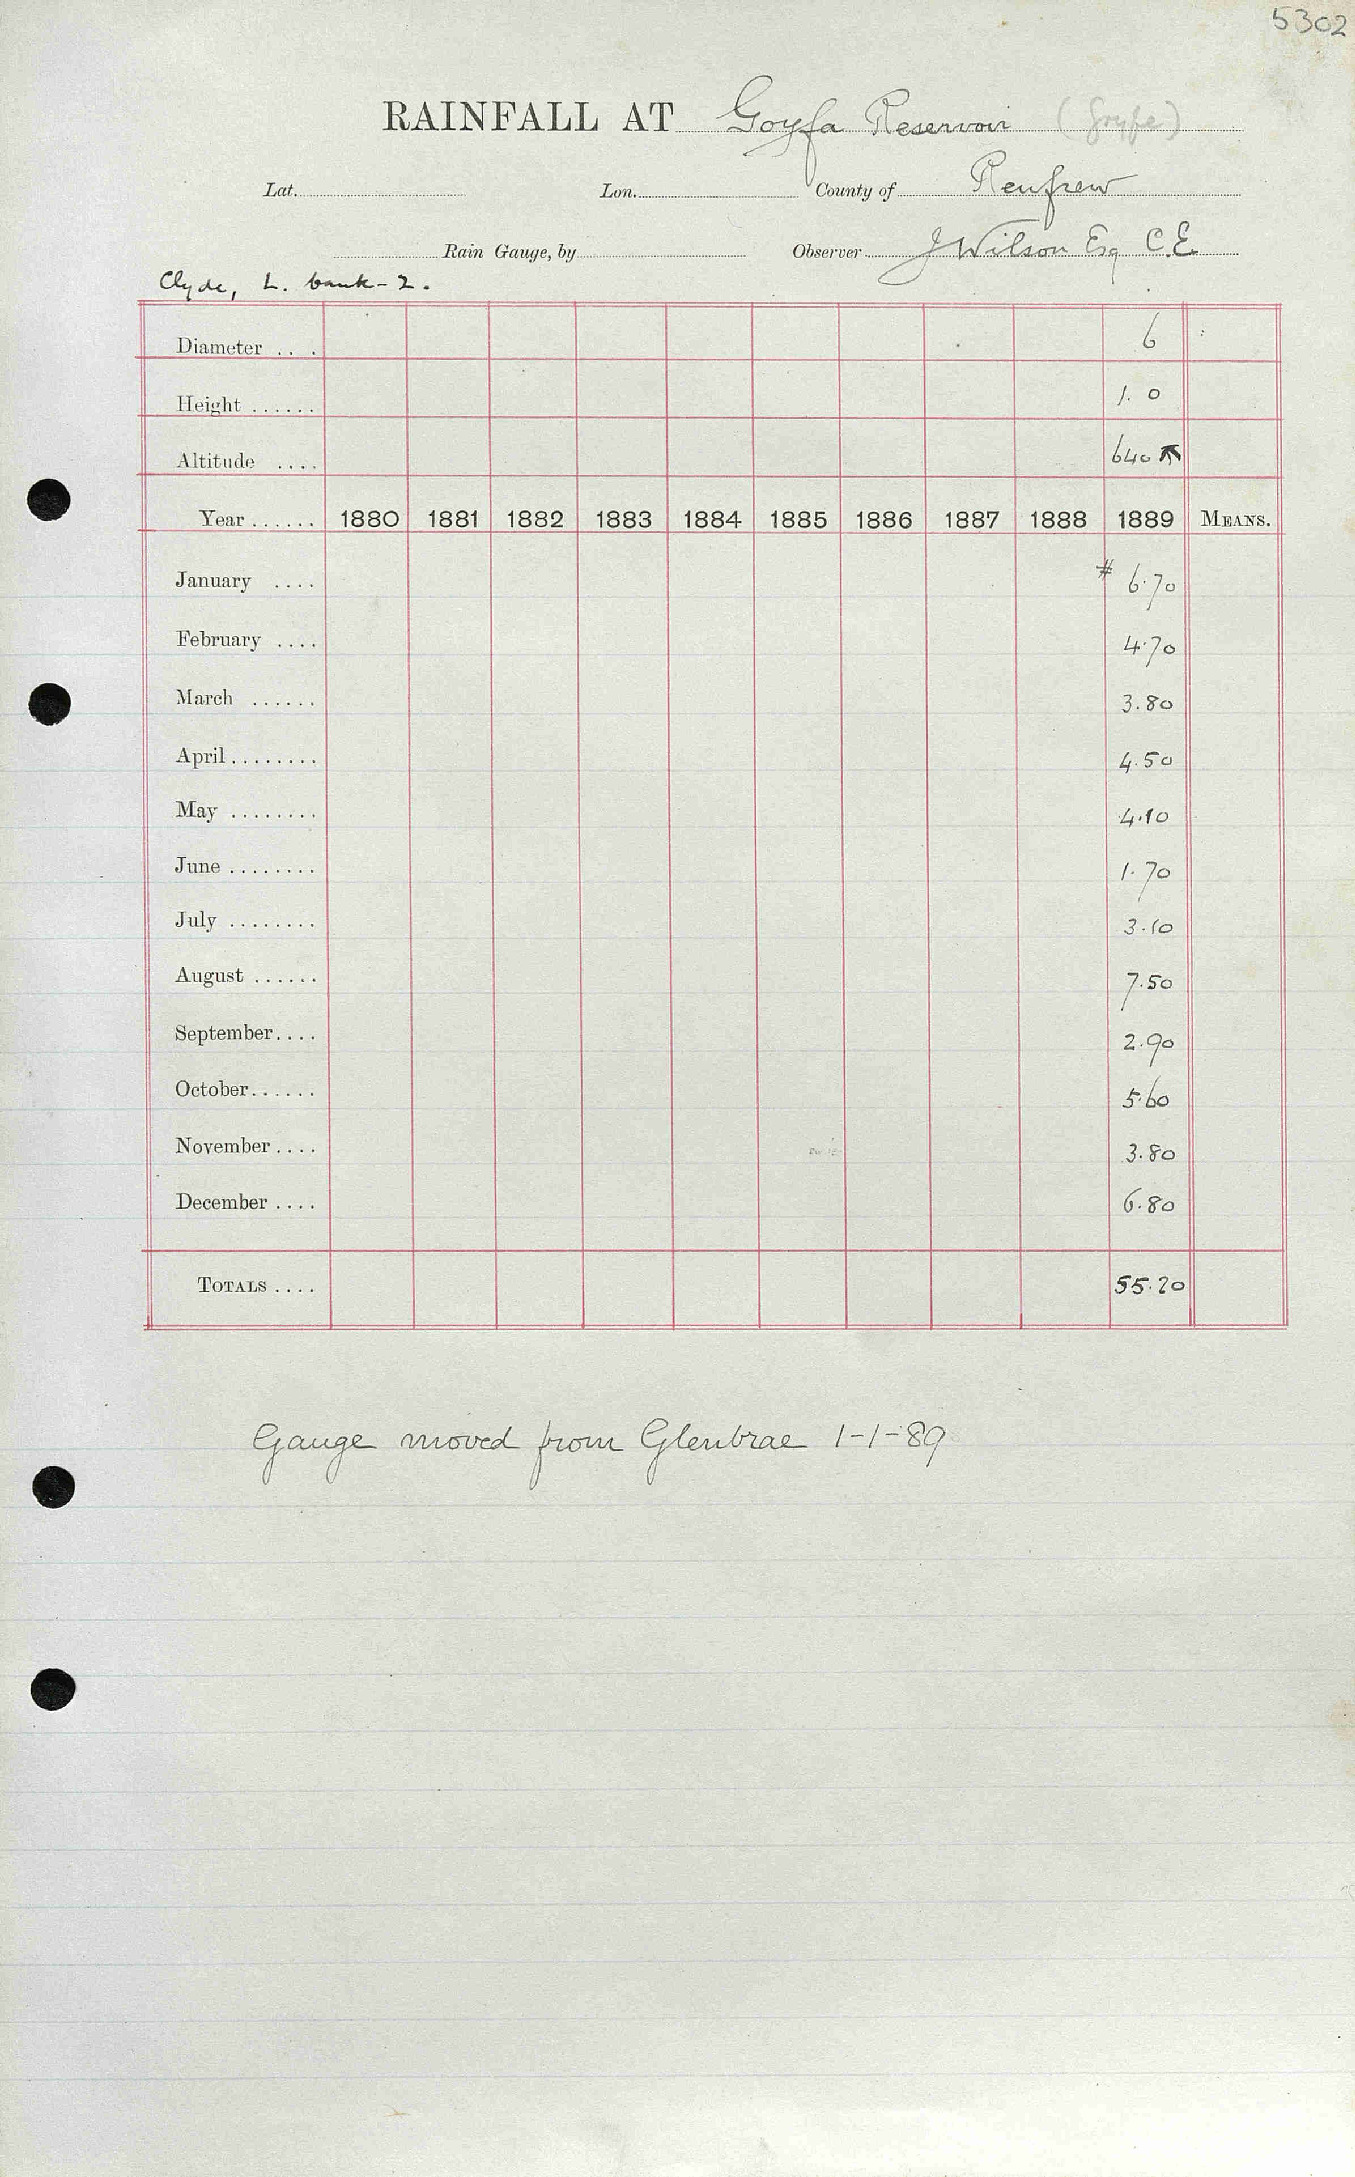 5302
RAINFALL AT Goyfa Reservoir (Gryfe)
Lat. Lon. County of Renfrew
Rain Gauge, by Observer J Wilson Esq C.E.
Clyde, L. bank - 2.
Diameter .... 6
Height ...... 1. 0
Altitude .... 640
Year ...... 1880 1881 1882 1883 1884 1885 1886 1887 1888 1889 MEANS.
January .... # 6.70
February .... 4.70
March ...... 3.80
April ........ 4.50
May ........ 4.10
June ........ 1.70
July ........ 3.10
August ...... 7.50
September.... 2.90
October...... 5.60
November.... 3.80
December.... 6.80
TOTALS .... 55.20
Gauge moved from Glenbrae 1-1-89